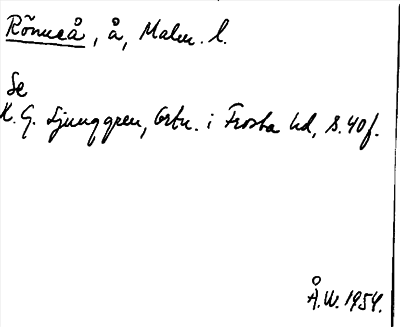 Rönneå, å, Malm. l.
Se
K. G. Ljunggren, Ortn. i Frosta hd, s. 40 f.
Å.W. 1954.